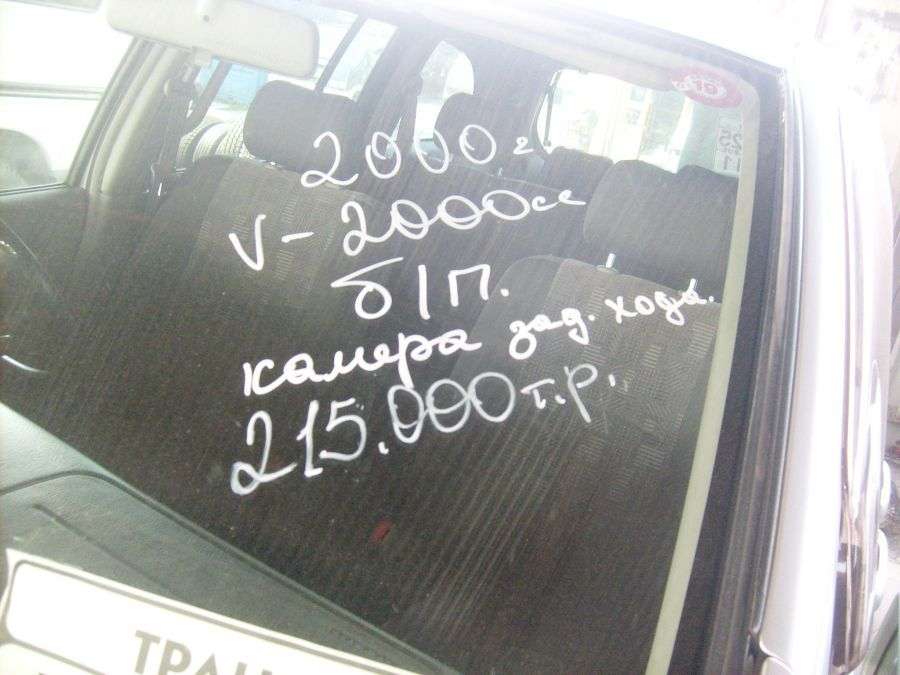 2000г
V-2000сс
б/п.
камера зад. хода.
215.000 т.р.
ТРАН